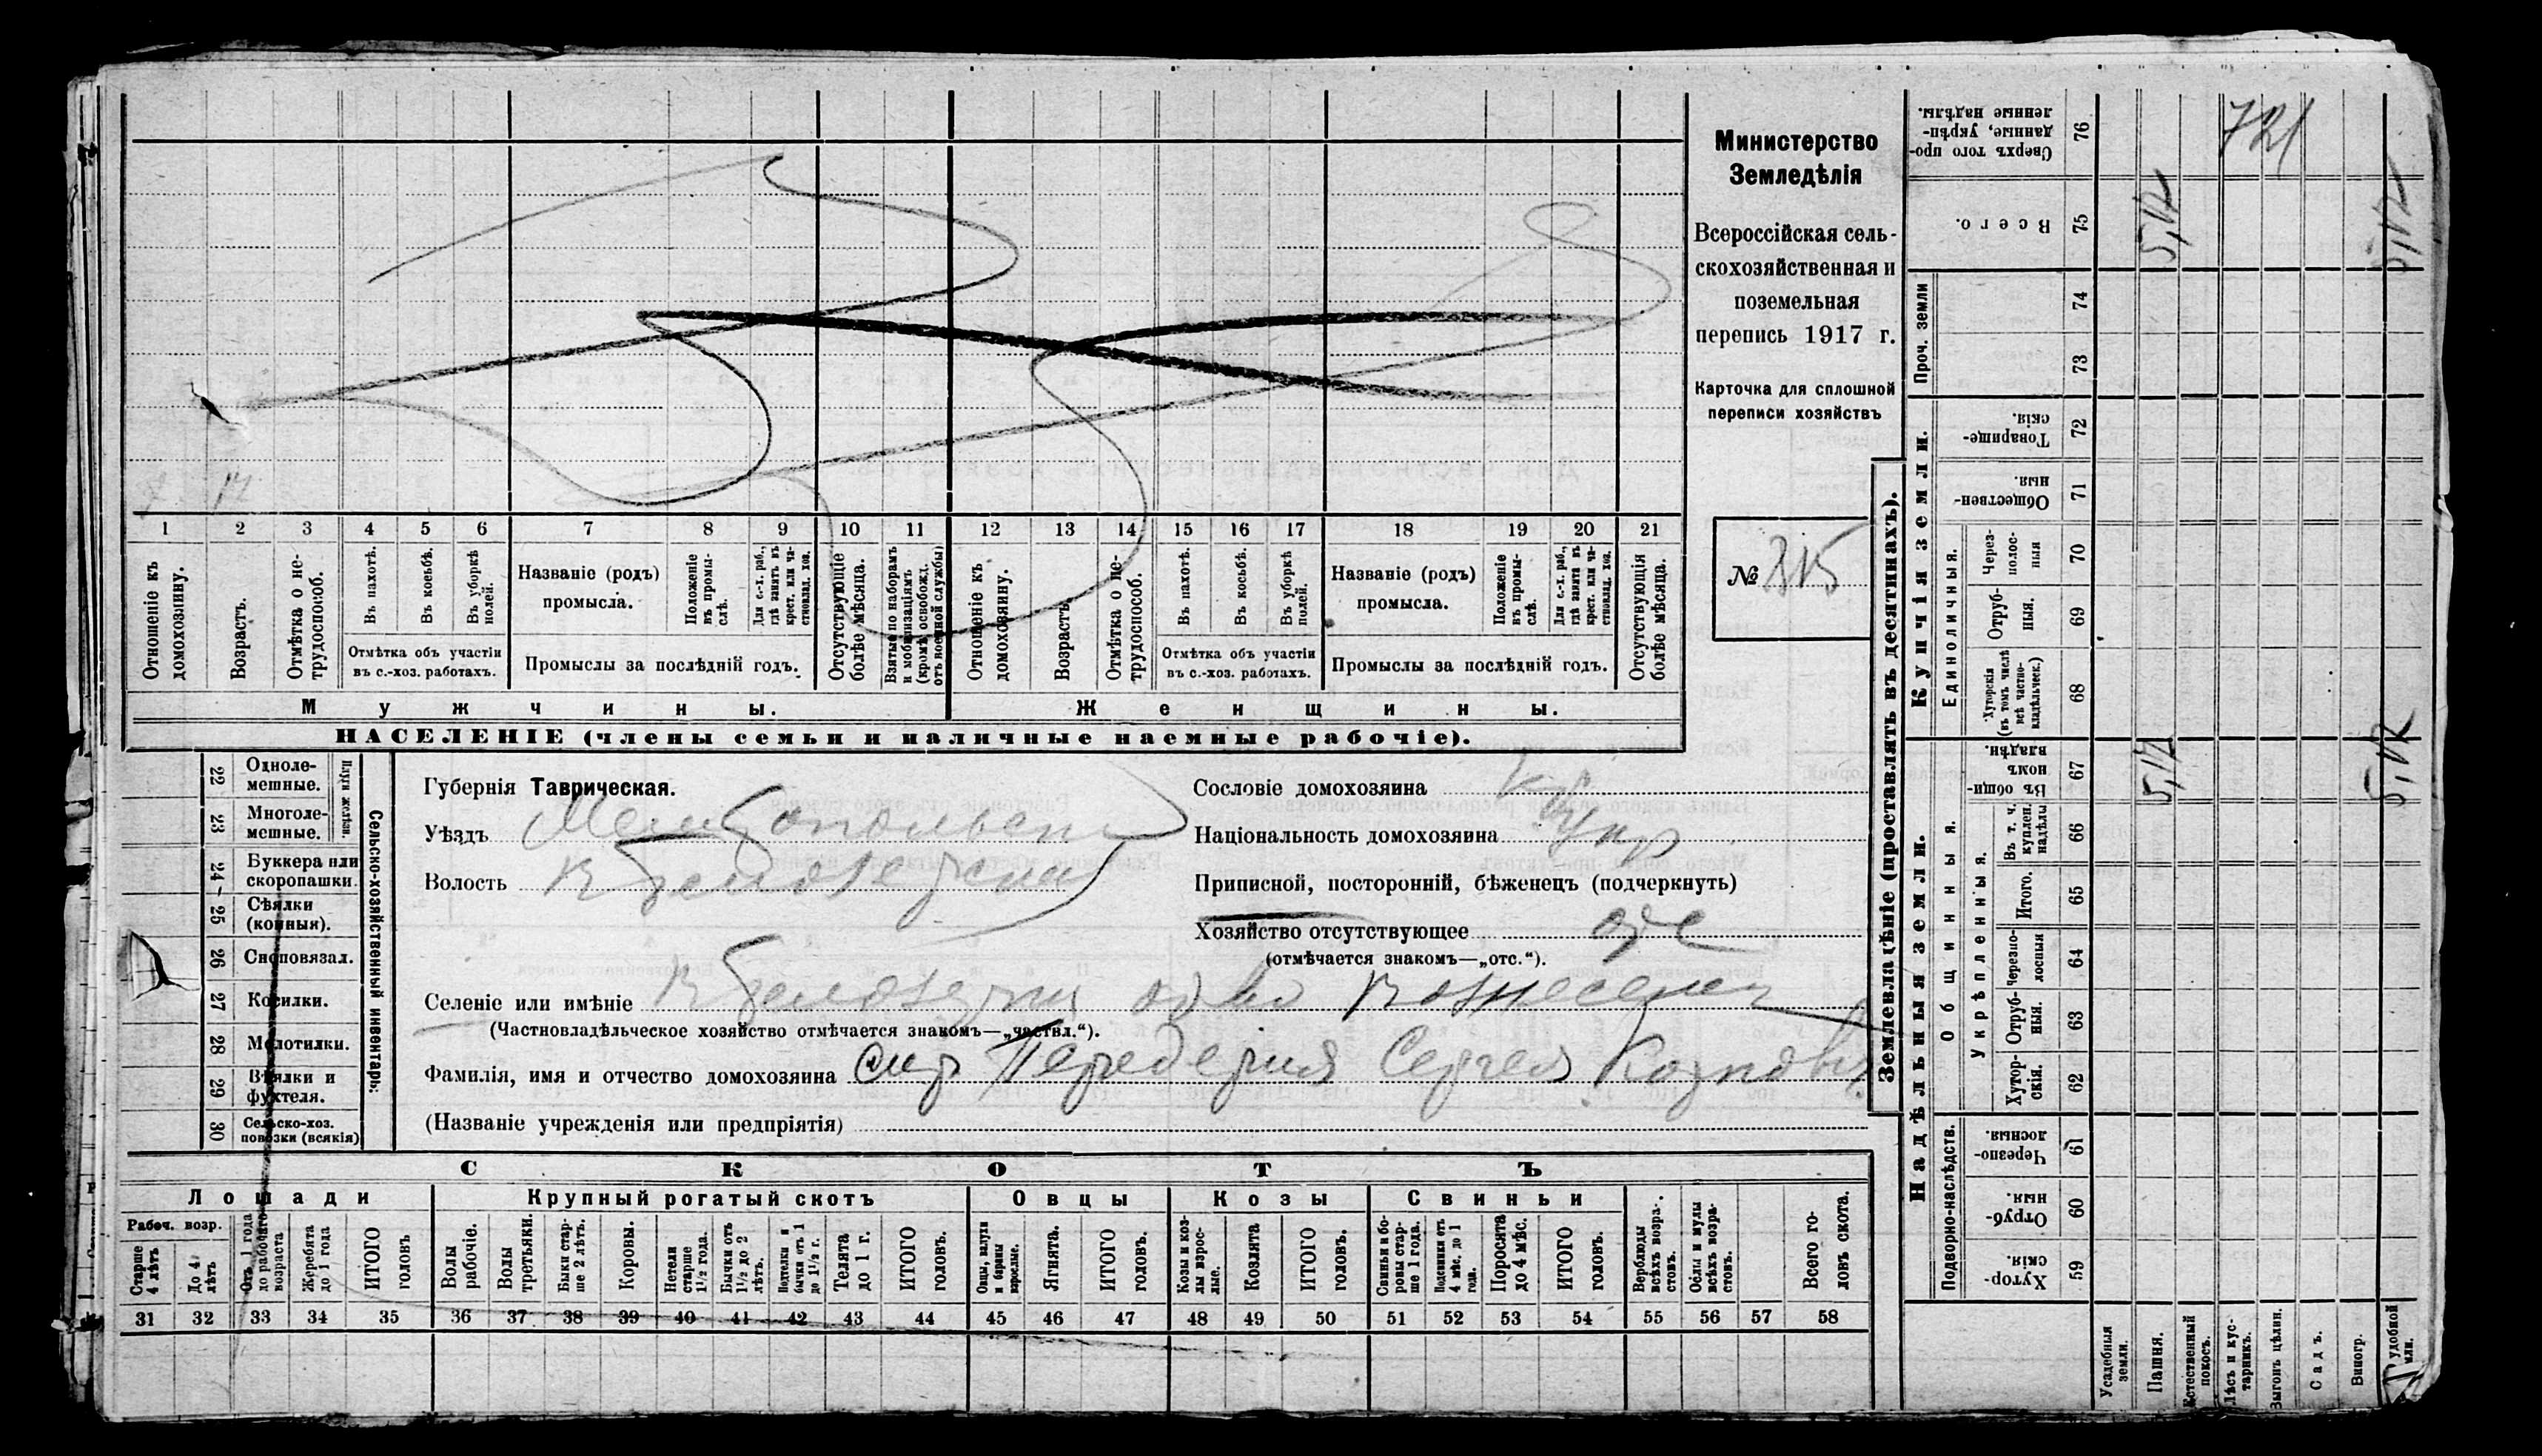 Министерство
Земледѣлія
Всероссійская сель-
скохозяйственная и
поземельная
перепись 1917 г.
Карточка для сплошной
переписи хозяйствъ
№ 315
1 2 3 4 5 6 7 8 9 10 11 12 13 14 15 16 17 18 19 20 21
Отношеніе къ домохозяину.
Возрастъ.
Отмѣтка о не-
трудоспособ.
Въ пахотѣ.
Въ косьбѣ.
Въ уборкѣ полей.
Отмѣтка объ участіи
въ с.-хоз. работахъ.
Названіе (родъ)
промысла.
Положеніе
въ промы-
слѣ.
Для с.-х. раб.,
гдѣ занятъ въ
крест. или ча-
стновлад. хоз.
Промыслы за послѣдній годъ.
Отсутствующіе
болѣе мѣсяца.
Взятые по наборамъ
и мобилизаціямъ
(кромѣ освобожд.
отъ военной службы)
Отношеніе къ
домохозяину.
Возрастъ.
Отмѣтка о не-
трудоспособ.
Въ пахотѣ.
Въ косьбѣ.
Въ уборкѣ
полей.
Отмѣтка объ участіи
въ с.-хоз. работахъ.
Названіе (родъ)
промысла.
Положеніе
въ промы-
слѣ.
Для с.-х. раб.,
гдѣ занята въ
крест. или ча-
стновлад. хоз.
Промыслы за послѣдній годъ.
Отсутствующія
болѣе мѣсяца.
Мужчины.
Женщины.
НАСЕЛЕНІЕ (члены семьи и наличные наемные рабочіе).
22 Одноле-
мешные.
23 Многоле-
мешные.
Плуги желѣзн.
24 Буккера или
скоропашки.
25 Сѣялки
(конныя).
26 Сноповязал.
27 Косилки.
28 Молотилки.
29 Вѣялки и
фухтеля.
30 Сельско-хоз.
повозки (всякія)
Сельско-хозяйственный инвентарь:
Губернія Таврическая.
Уѣздъ
Волость
Сословіе домохозяина
Національность домохозяина Укр
Приписной, посторонній, бѣженецъ (подчеркнуть)
Хозяйство отсутствующее
(отмѣчается знакомъ—„отс.“).
Селеніе или имѣніе
(Частновладѣльческое хозяйство отмѣчается знакомъ—„частвл.“).
Фамилія, имя и отчество домохозяина Сергея
(Названіе учрежденія или предпріятія)
СКОТЪ
Лошади
Крупный рогатый скотъ
Овцы
Козы
Свиньи
Рабоч. возр.
Старше
4 лѣтъ
До 4
лѣтъ
Отъ 1 года
до рабочаго
возраста
Жеребята
до 1 года
ИТОГО
головъ
Волы
рабочіе.
Волы
третьяки.
Быки стар-
ше 2 лѣтъ.
Коровы.
Нетели
старше
1½ года.
Бычки отъ
1½ до 2
лѣтъ.
Подтелки и
бычки отъ 1
до 1½ г.
Телята
до 1 г.
ИТОГО
головъ.
Овцы, валухи
и бараны
взрослые.
Ягнята.
ИТОГО
головъ.
Козы и коз-
лы взрос-
лые.
Козлята
ИТОГО
головъ.
Свиньи и бо-
ровы стар-
ше 1 года.
Подсвинки отъ
4 мѣс. до 1
года.
Поросята
до 4 мѣс.
ИТОГО
головъ.
Верблюды
всѣхъ возра-
стовъ.
Ослы и мулы
всѣхъ возра-
стовъ.
Всего го-
ловъ скота.
31 32 33 34 35 36 37 38 39 40 41 42 43 44 45 46 47 48 49 50 51 52 53 54 55 56 57 58
Землевладѣніе (проставлять въ десятинахъ).
Надѣльныя земли.
Купчія земли.
Подворно-наслѣдств.
Общинныя.
Укрѣпленныя.
Единоличныя.
Проч. земли
Сверхъ того про-
данные, укрѣп-
ленные надѣлы. 76 721
Всего. 75
74
73
Товарище-
скія 72
Обществен-
ныя 71
Через-
полос-
ныя 70
Отруб-
ныя. 69
Хуторскія
(въ томъ числѣ
всѣ частно-
владѣльческ.) 68
Въ общин-
номъ
владѣн. 67
Въ т. ч.
куплен.
надѣлы 66
Итого. 65
Черезпо-
лосныя 64
Отруб-
ныя. 63
Хутор-
скія. 62
Черезпо-
лосныя. 61
Отруб-
ныя. 60
Хутор-
скія. 59
Усадебныя
земли.
Пашня.
Естественный
покосъ.
Лѣсъ и кус-
тарникъ.
Выгонъ цѣлин.
Садъ.
Виногр.